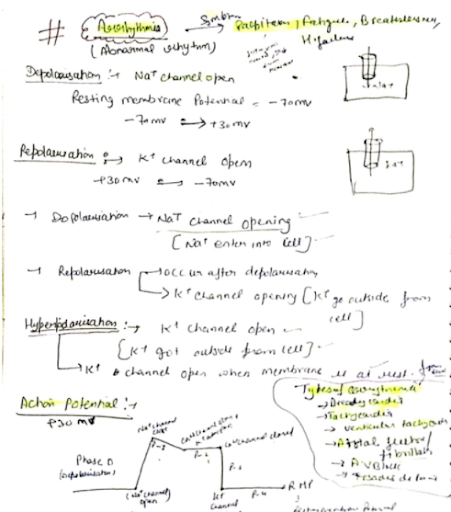 # Arrhythmia → Palpitern, Fatigue, Breathlessness,
(Abnormal rhythm)
H. failure
Depolarisation :- Na+ channel open
Resting membrane Potential = -70mv
-70mv → +30mv
Repolarisation :- K+ channel open
+30mv → -70mv
→ Depolarisation → Na+ channel opening
[Na+ enter into cell]
→ Repolarisation → occur after depolarisation
→ K+ channel opening [K+ go outside from
cell]
Hyperpolarisation :- K+ channel open
[K+ got outside from cell]
→ K+ channel open when membrane is at rest.
Types of arrhythmia
→ Bradycardia
→ Tachycardia
→ venticular tachycardia
→ Atrial flutter/
fibrillation
→ AV Block
Action Potential :-
+30mv
Na+ channel
close
Ca+ channel closed
Phase 0
(depolarisation)
P-2
P-3
P-4
RMP
(Na+ channel)
open
K+
channel